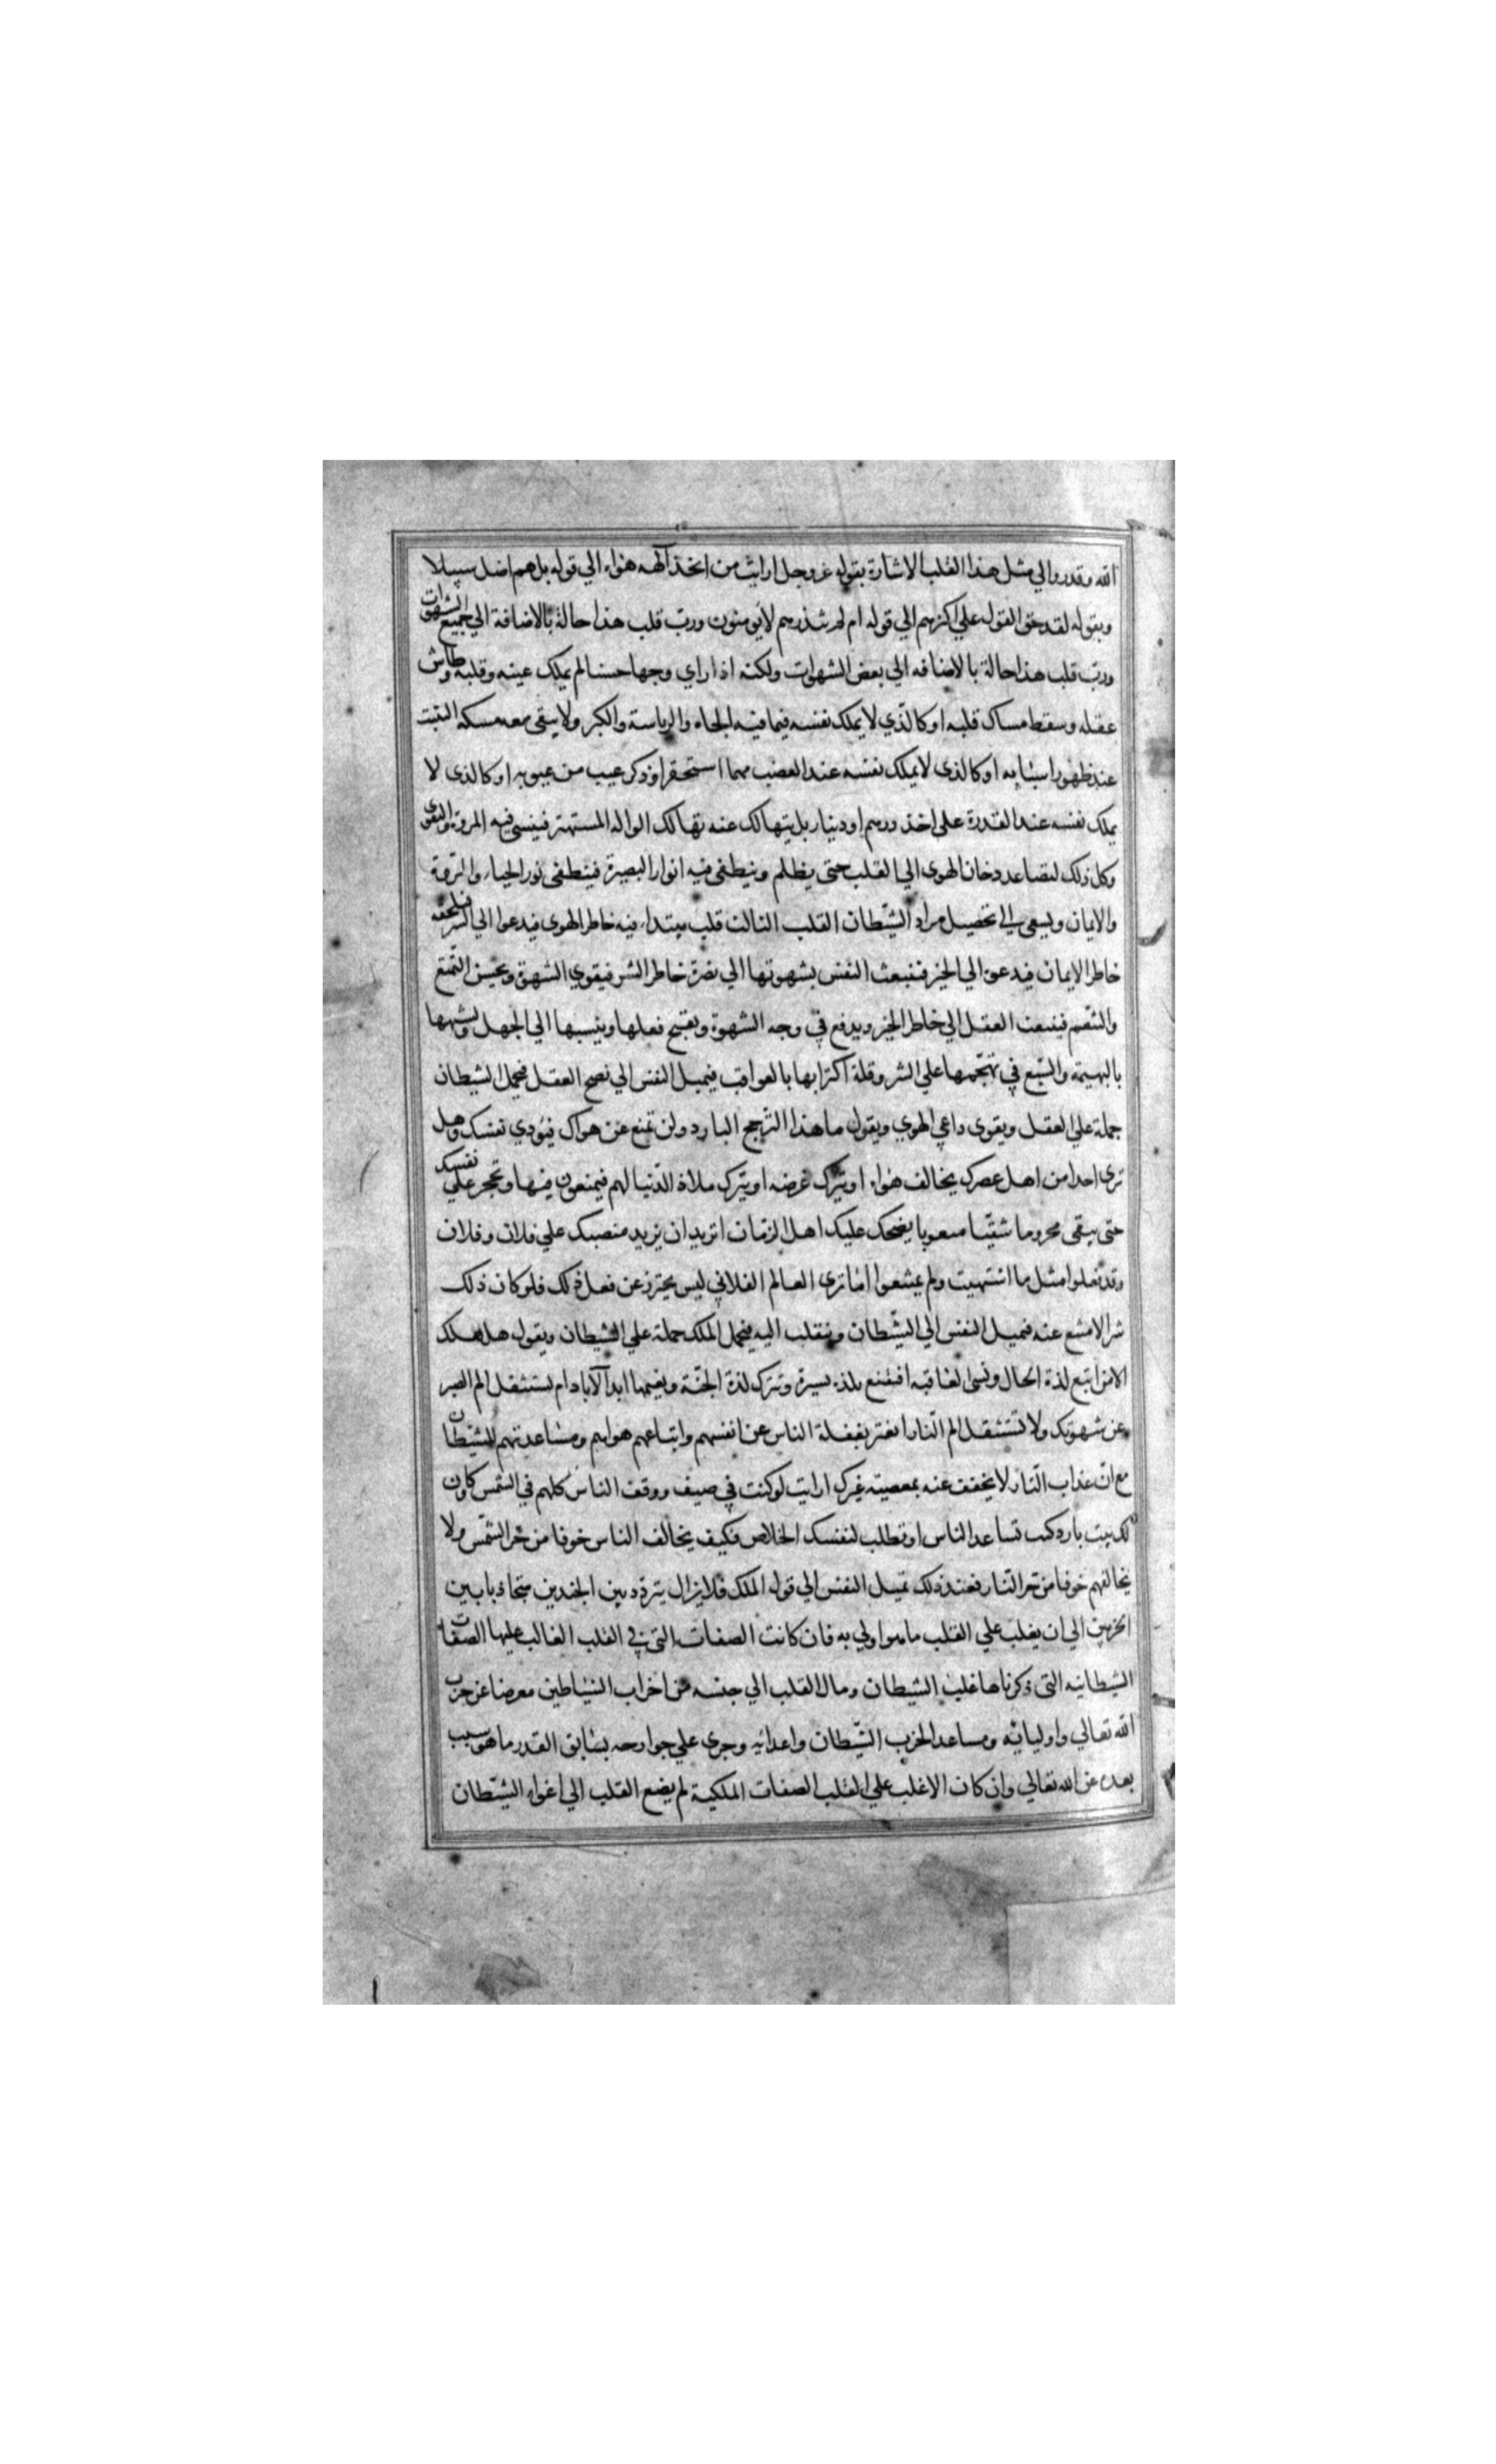 الله وقدره والي مثل هذا القلب الاشارة بقوله عز وجل ارايت من اتخذ آلهه هواه الي قوله بل هم اضل سبيلا
وبقوله لقد حق القول علي اكثرهم الي قوله ام لم تنذرهم لايومنون ورب قلب هذا حالة بالاضافة الي جميع الشهوات
ورب قلب هذا حالة بالاضافه الي بعض الشهوات ولكنه اذا راي وجها حسنا لم يملك عينه وقلبه وطاش
عقله وسقط مساك قلبه او كالذي لا يملك نفسه فيما فيه الجاه والرياسة والكبر ولا يبقي معه مسكه التثبت
عند ظهور اسبابه او كالذي لا يملك نفسه عند الغضب مهما استحقر او ذكر عيب من عيوبه او كالذي لا
يملك نفسه عند القدرة علي اخذ درهم او دينار بل يتهالك عنه تهالك الواله المستهتر فينسي فيه المروة والتقوي
وكل ذلك لتصاعد دخان الهوي الي القلب حتى يظلم وينطفي فيه انوار البصيرة فينطفي نور الحياء والمروة
والايمان ويسعي في تحصيل مراد الشيطان القلب الثالث قلب يبتداء فيه خاطر الهوي فيدعوا الي الشر فيلحقه
خاطر الايمان فيدعوه الي الخير فتنبعث النفس بشهوتها الي نصرة خاطر الشر فيقوي الشهوة ويحسن التمتع
والتنعم فينبعث العقل الي خاطر الخير ويدفع في وجه الشهوة ويقبح فعلها وينسبها الي الجهل ويشبهها
بالبهيمة والسبع في تهجمها علي الشر وقلة اكتراثها بالعواقب فيميل النفس الي نصح العقل فيحمل الشيطان
حملة علي العقل ويقوي داعي الهوي ويقول ما هذا التحرج البارد ولن تمنع عن هواك فيؤدي نفسك وهل
تري احدا من اهل عصرك يخالف هواه او يترك غرضه او يترك ملاذ الدنيا لهم فيمنعون فيها وتحجر علي نفسك
حتي يبقي محروما شقيا متعوبا يضحك عليك اهل الزمان اتريد ان يزيد منصبك علي فلان وفلان
وقد فعلوا مثل ما اشتهيت ولم يمتنعوا اما تري العالم الفلاني ليس يحترز عن فعل ذلك فلو كان ذلك
شرا لامتنع عنه فتميل النفس الي الشيطان وينقلب اليه فيحمل الملك حملة علي الشيطان ويقول هل هلك
الا من اتبع لذة الحال ونسي العاقبه افتقنع بلذة يسيرة وتترك لذة الجنة ونعيمها ابد الآباد ام تستثقل الم الصبر
عن شهوتك ولا تستثقل الم النار اتغتر بغفلة الناس عن انفسهم واتباعهم هواهم ومساعدتهم للشيطان
مع ان عذاب النار لا يخفف عنه بمعصيته غيرك ارايت لو كنت في صيف ووقف الناس كلهم في الشمس وكان
لك بيت بارد كنت تساعد الناس او تطلب لنفسك الخلاص فكيف يخالف الناس خوفا من حر الشمس ولا
يخالفهم خوفا من حر النار فعند ذلك تميل النفس الي قول الملك فلا يزال يتردد بين الجندين متجاذبا بين
الحزبين الي ان يغلب علي القلب ما هو اولي به فان كانت الصفات التي في القلب الغالب عليها الصفات
الشيطانيه التي ذكرناها غلب الشيطان ومال القلب الي جنسه من احزاب الشياطين معرضا عن حزب
الله تعالي واوليائه ومساعد الحزب الشيطان واعدائه وجري علي جوارحه بسابق القدر ما هو سبب
بعده عن الله تعالي وان كان الاغلب علي القلب الصفات الملكية لم يضع القلب الي اغواء الشيطان